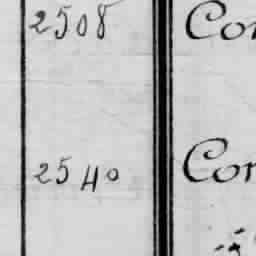 2508 Con
2540 Con